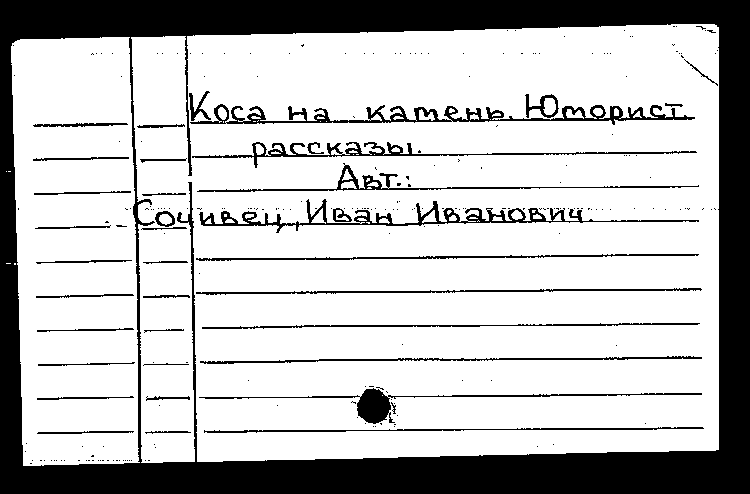 Коса на камень. Юморист.
рассказы.
Авт.:
Сочивец, Иван Иванович.